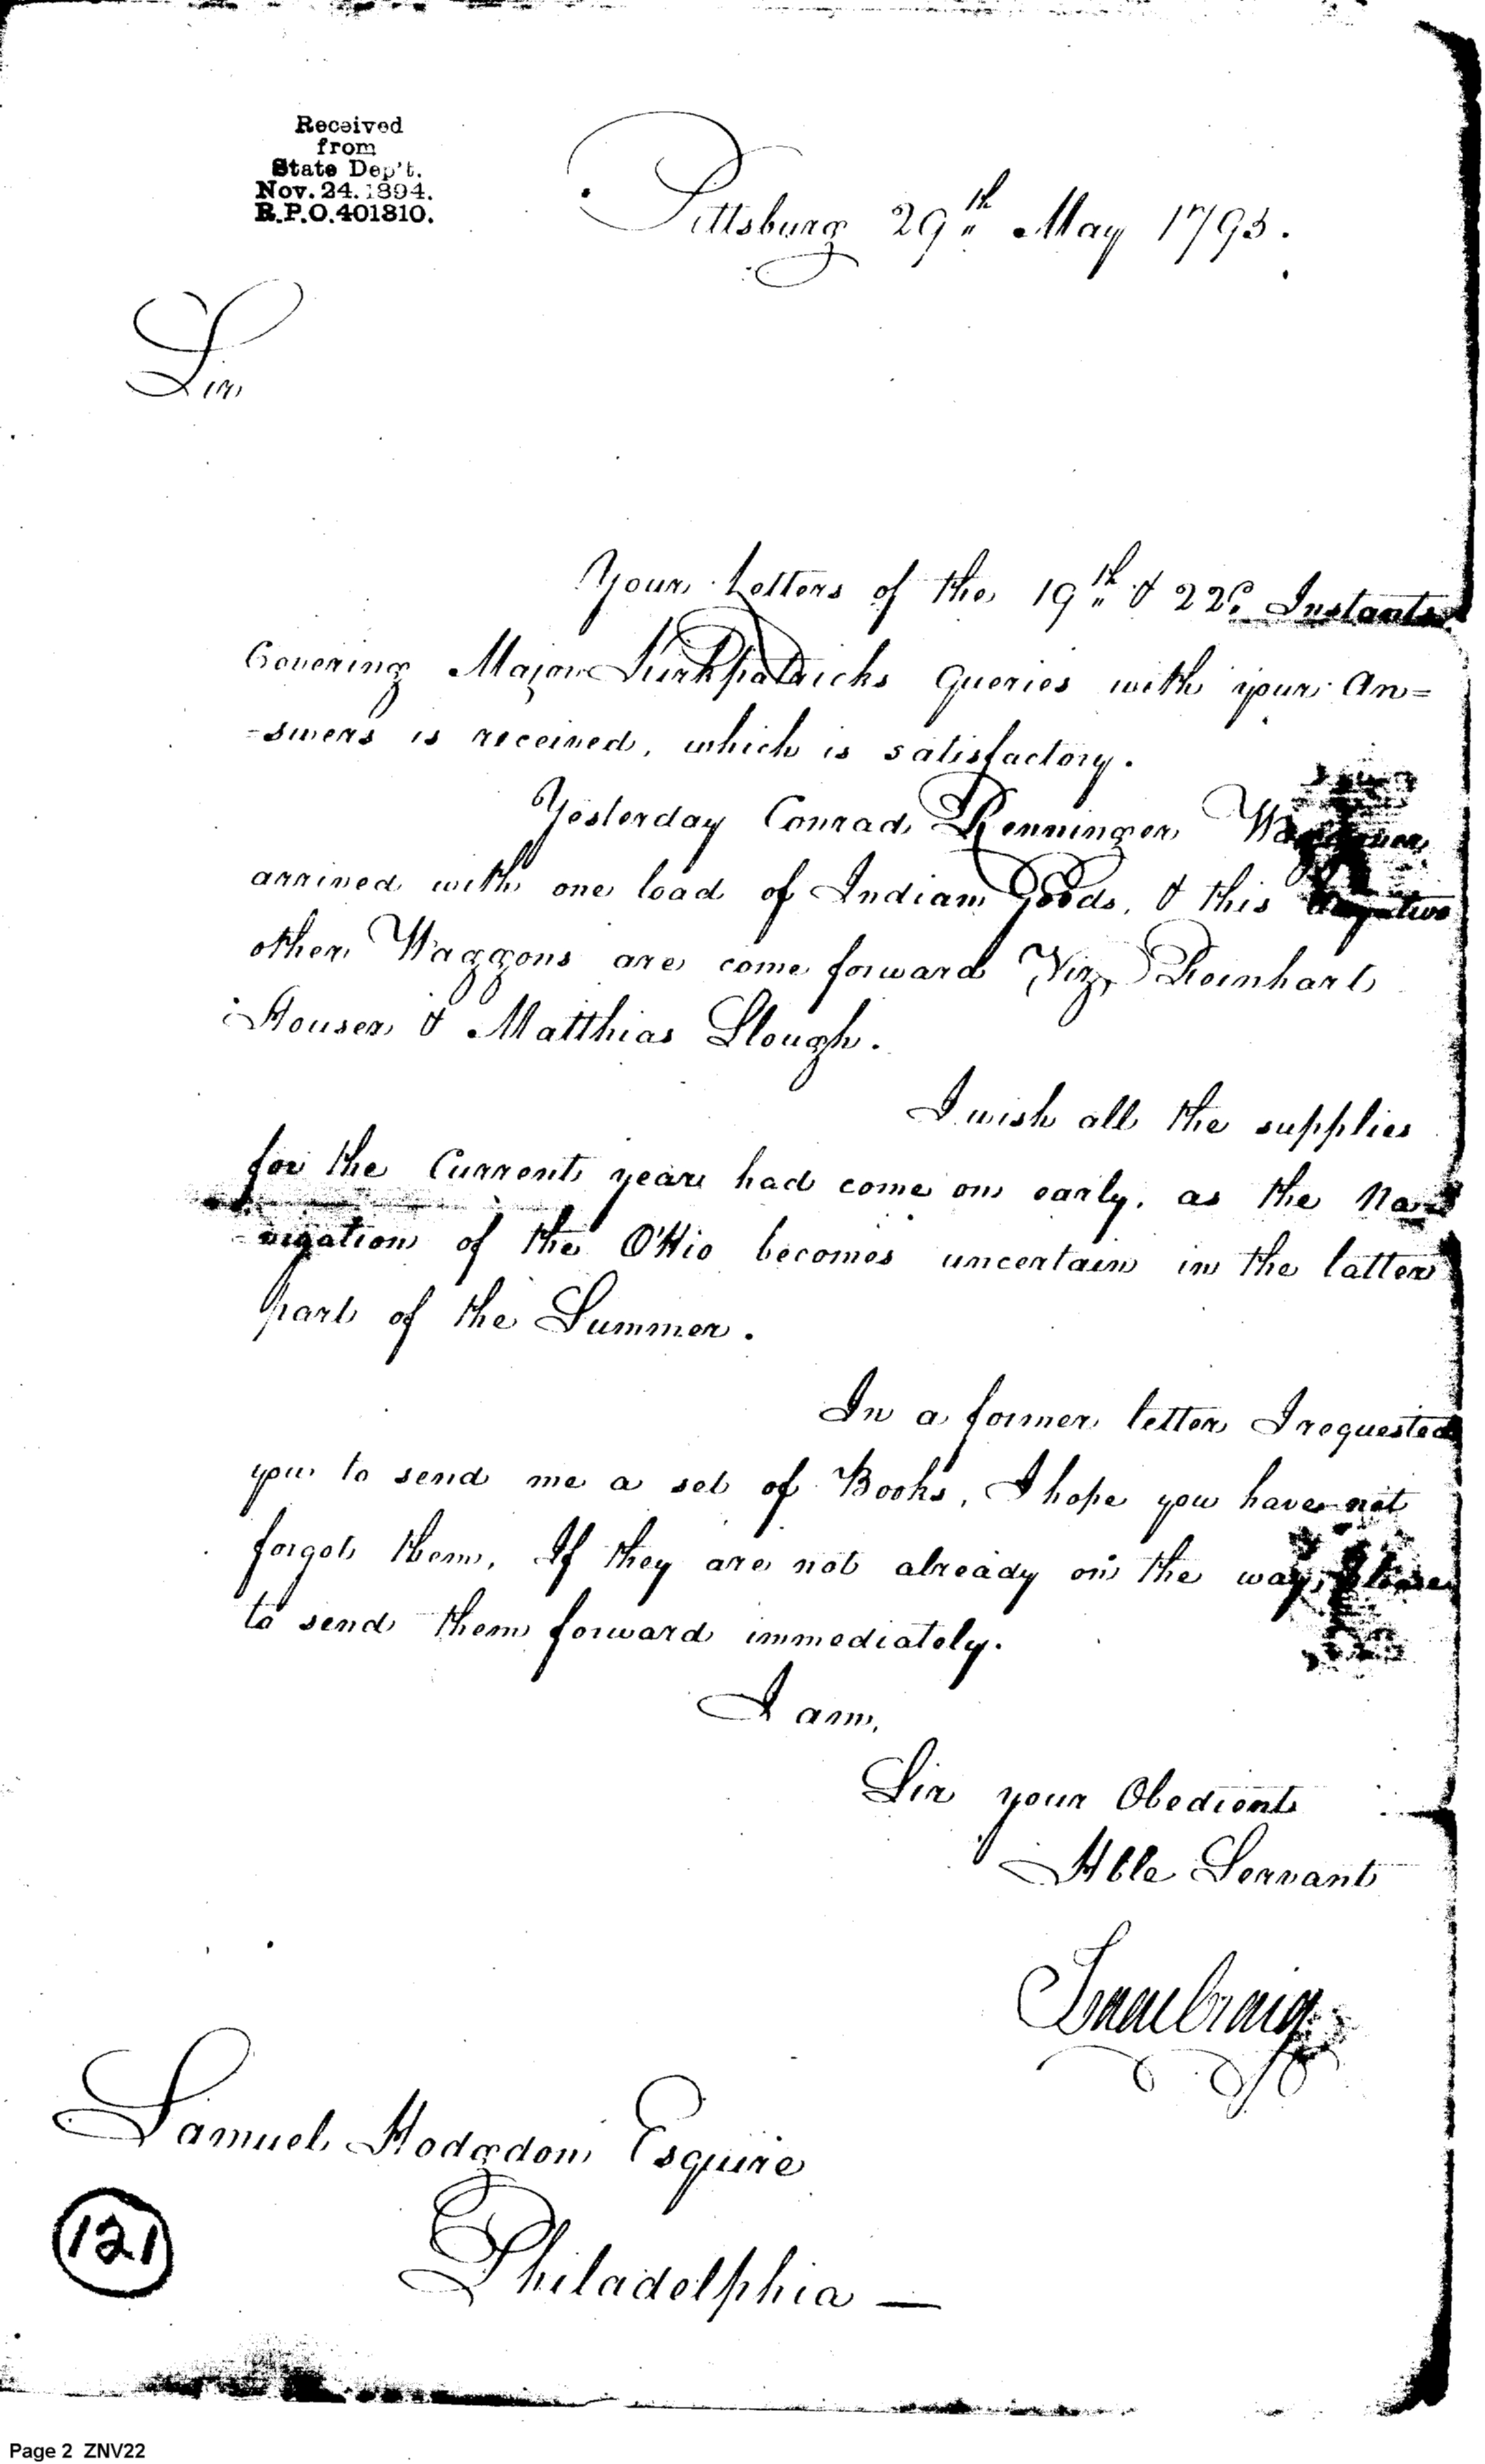 Received
from
State Dep't.
Nov. 24. 1894.
R.P.O. 401810.
Pittsburg 29th May 1793.
Sir
Your Letters of the 19th & 22d. Instants
Covering Major Kirkpatricks Queries with your An=
=swers is received, which is satisfactory.
Yesterday Conrad Renninger Waggoner
arrived with one load of Indian Goods, & this day two
other Waggons are come forward Viz. Reinhart
Houser & Matthias Slough.
I wish all the supplies
for the Current year had come on early, as the Na=
=vigation of the O'Hio becomes uncertain in the latter
part of the Summer.
In a former letter I requested
you to send me a set of Books, I hope you have not
forgot them, If they are not already on the way, please
to send them forward immediately.
I am,
Sir your Obedient
Hble Servant
Isaac Craig
Samuel Hodgdon Esquire
Philadelphia —
121
Page 2 ZNV22